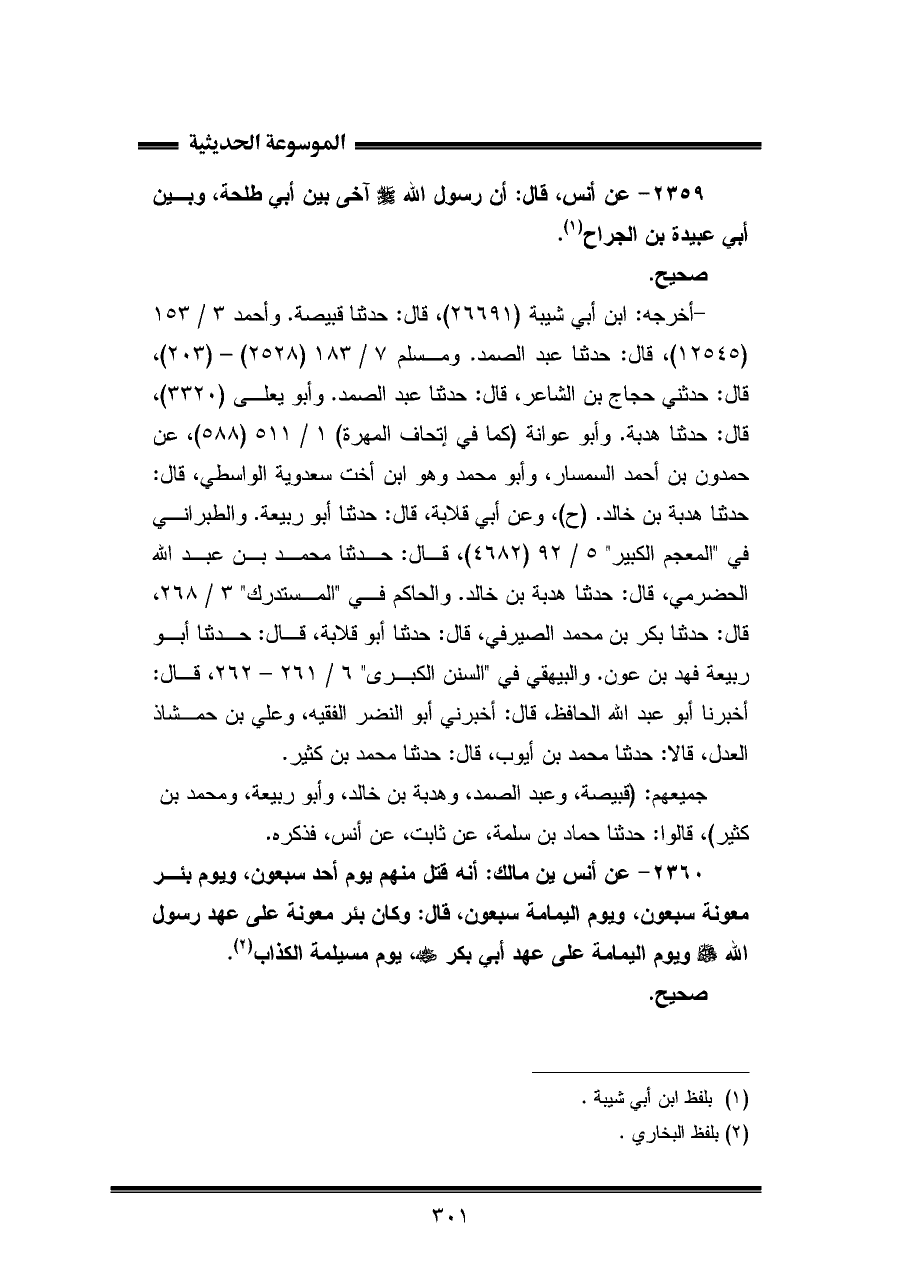 الموسوعة الحديثية
٢٣٥٩- عن أنس، قال: أن رسول الله ﷺ آخى بين أبي طلحة، وبين
أبي عبيدة بن الجراح(١).
صحيح.
-أخرجه: ابن أبي شيبة (٢٦٦٩١)، قال: حدثنا قبيصة. وأحمد ٣ / ١٥٣
(١٢٥٤٥)، قال: حدثنا عبد الصمد. ومسلم ٧ / ١٨٣ (٢٥٢٨) – (٢٠٣)،
قال: حدثني حجاج بن الشاعر، قال: حدثنا عبد الصمد. وأبو يعلى (٣٣٢٠)،
قال: حدثنا هدبة. وأبو عوانة (كما في إتحاف المهرة) ١ / ٥١١ (٥٨٨)، عن
حمدون بن أحمد السمسار، وأبو محمد وهو ابن أخت سعدوية الواسطي، قال:
حدثنا هدبة بن خالد. (ح)، وعن أبي قلابة، قال: حدثنا أبو ربيعة. والطبراني
في "المعجم الكبير" ٥ / ٩٢ (٤٦٨٢)، قال: حدثنا محمد بن عبد الله
الحضرمي، قال: حدثنا هدبة بن خالد. والحاكم في "المستدرك" ٣ / ٢٦٨،
قال: حدثنا بكر بن محمد الصيرفي، قال: حدثنا أبو قلابة، قال: حدثنا أبو
ربيعة فهد بن عون. والبيهقي في "السنن الكبرى" ٦ / ٢٦١ – ٢٦٢، قال:
أخبرنا أبو عبد الله الحافظ، قال: أخبرني أبو النضر الفقيه، وعلي بن حمشاذ
العدل، قالا: حدثنا محمد بن أيوب، قال: حدثنا محمد بن كثير.
جميعهم: (قبيصة، وعبد الصمد، وهدبة بن خالد، وأبو ربيعة، ومحمد بن
كثير)، قالوا: حدثنا حماد بن سلمة، عن ثابت، عن أنس، فذكره.
٢٣٦٠- عن أنس ين مالك: أنه قتل منهم يوم أحد سبعون، ويوم بئر
معونة سبعون، ويوم اليمامة سبعون، قال: وكان بئر معونة على عهد رسول
الله ﷺ ويوم اليمامة على عهد أبي بكر ﵁، يوم مسيلمة الكذاب(٢).
صحيح.
(١) بلفظ ابن أبي شيبة .
(٢) بلفظ البخاري .
٣٠١